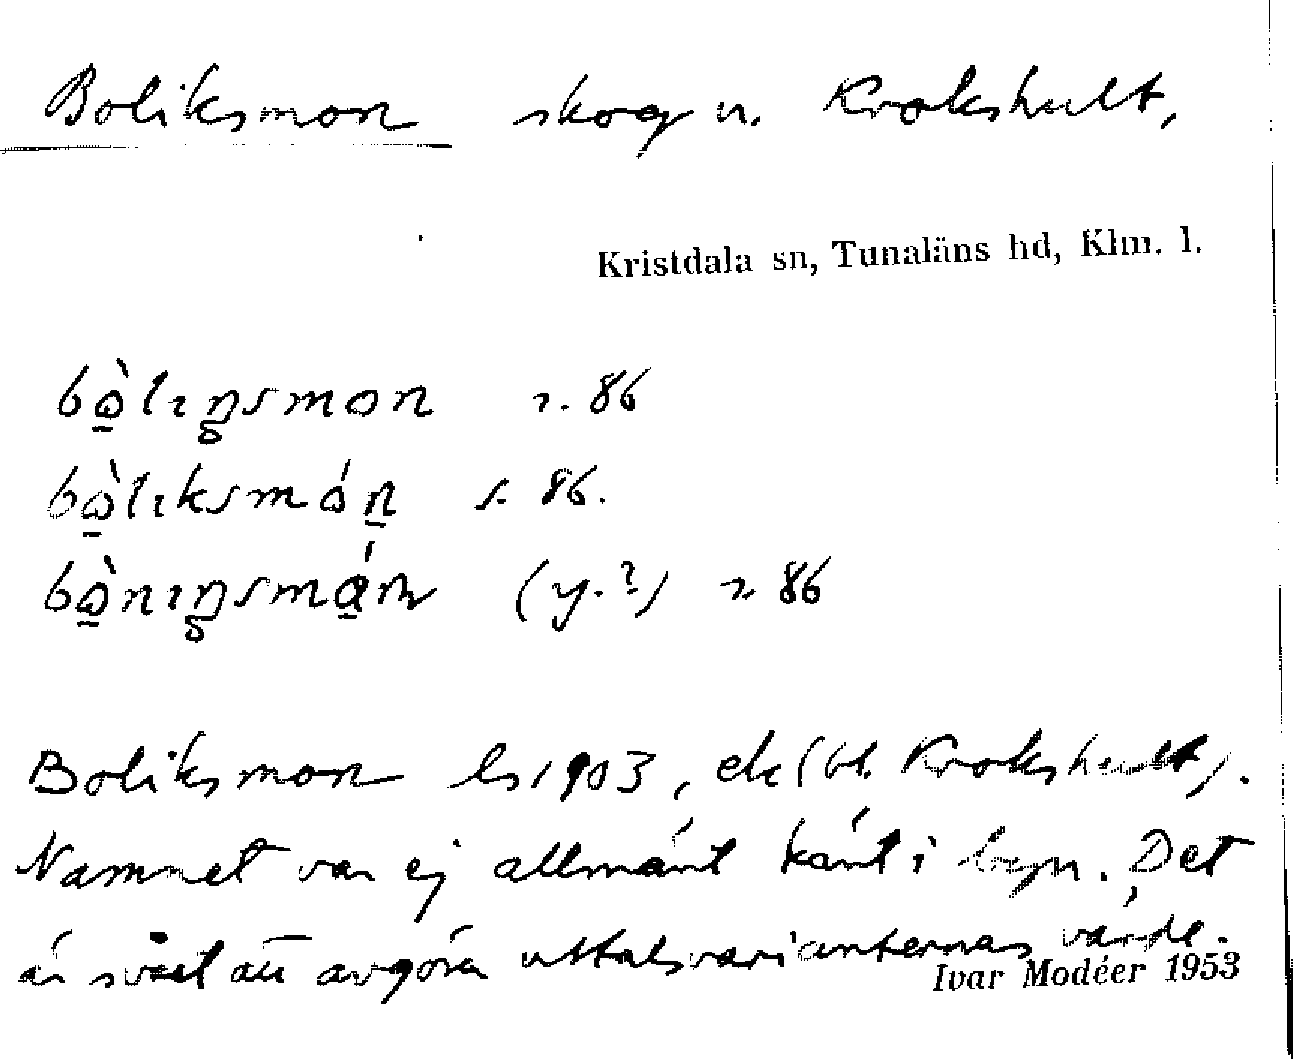 Boliksmon skog n. Krokshult,
Kristdala sn, Tunaläns hd, Klm. l.
bò̱lıŋsmon r. 86
bò̱lıksmóṉ s. 86.
bò̱nıŋsmá̱n (y.?) r. 86
Boliksmon ls 1903, ek (bl. Krokshult).
Namnet var ej allmänt känt i byn. Det
är svårt att avgöra uttalsvarianternas värde.
Ivar Modéer 1953